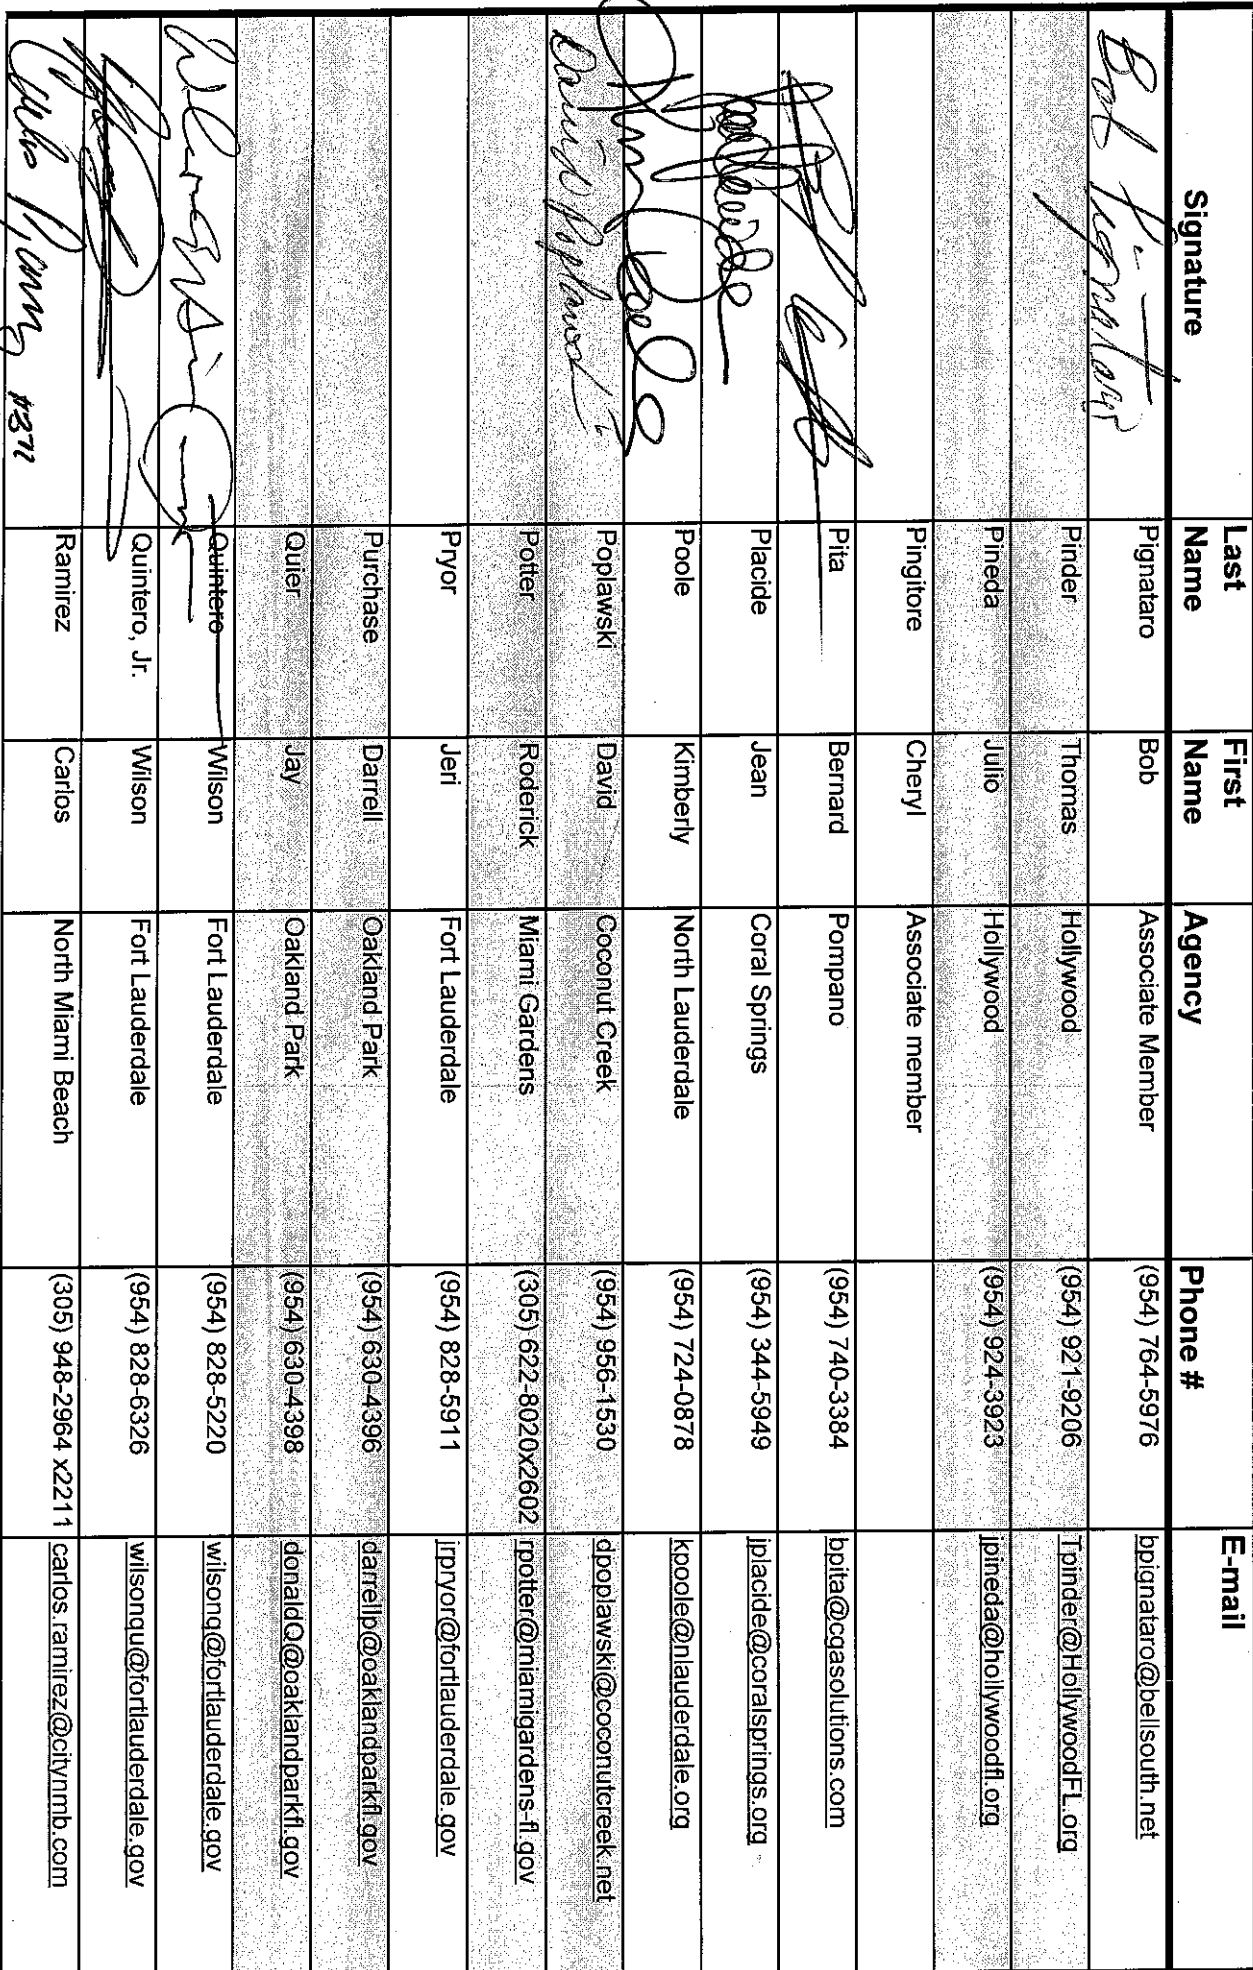 Signature Last Name First Name Agency Phone # E-mail
Bob Pignataro Pignataro Bob Associate Member (954) 764-5976 bpignataro@bellsouth.net
Pinder Thomas Hollywood (954) 921-9206 Tpinder@HollywoodFL.org
Pineda Julio Hollywood (954) 924-3923 jpineda@hollywoodfl.org
Pingitore Cheryl Associate member
Pita Bernard Pompano (954) 740-3384 bpita@cgasolutions.com
Placide Jean Coral Springs (954) 344-5949 jplacide@coralsprings.org
Poole Kimberly North Lauderdale (954) 724-0878 kpoole@nlauderdale.org
David Poplawski Poplawski David Coconut Creek (954) 956-1530 dpoplawski@coconutcreek.net
Potter Roderick Miami Gardens (305) 622-8020x2602 rpotter@miamigardens-fl.gov
Pryor Jeri Fort Lauderdale (954) 828-5911 jrpryor@fortlauderdale.gov
Purchase Darrell Oakland Park (954) 630-4396 darrellp@oaklandparkfl.gov
Quier Jay Oakland Park (954) 630-4398 donaldQ@oaklandparkfl.gov
Quintero Wilson Fort Lauderdale (954) 828-5220 wilsonq@fortlauderdale.gov
Quintero, Jr. Wilson Fort Lauderdale (954) 828-6326 wilsonqu@fortlauderdale.gov
#371 Ramirez Carlos North Miami Beach (305) 948-2964 x2211 carlos.ramirez@citynmb.com